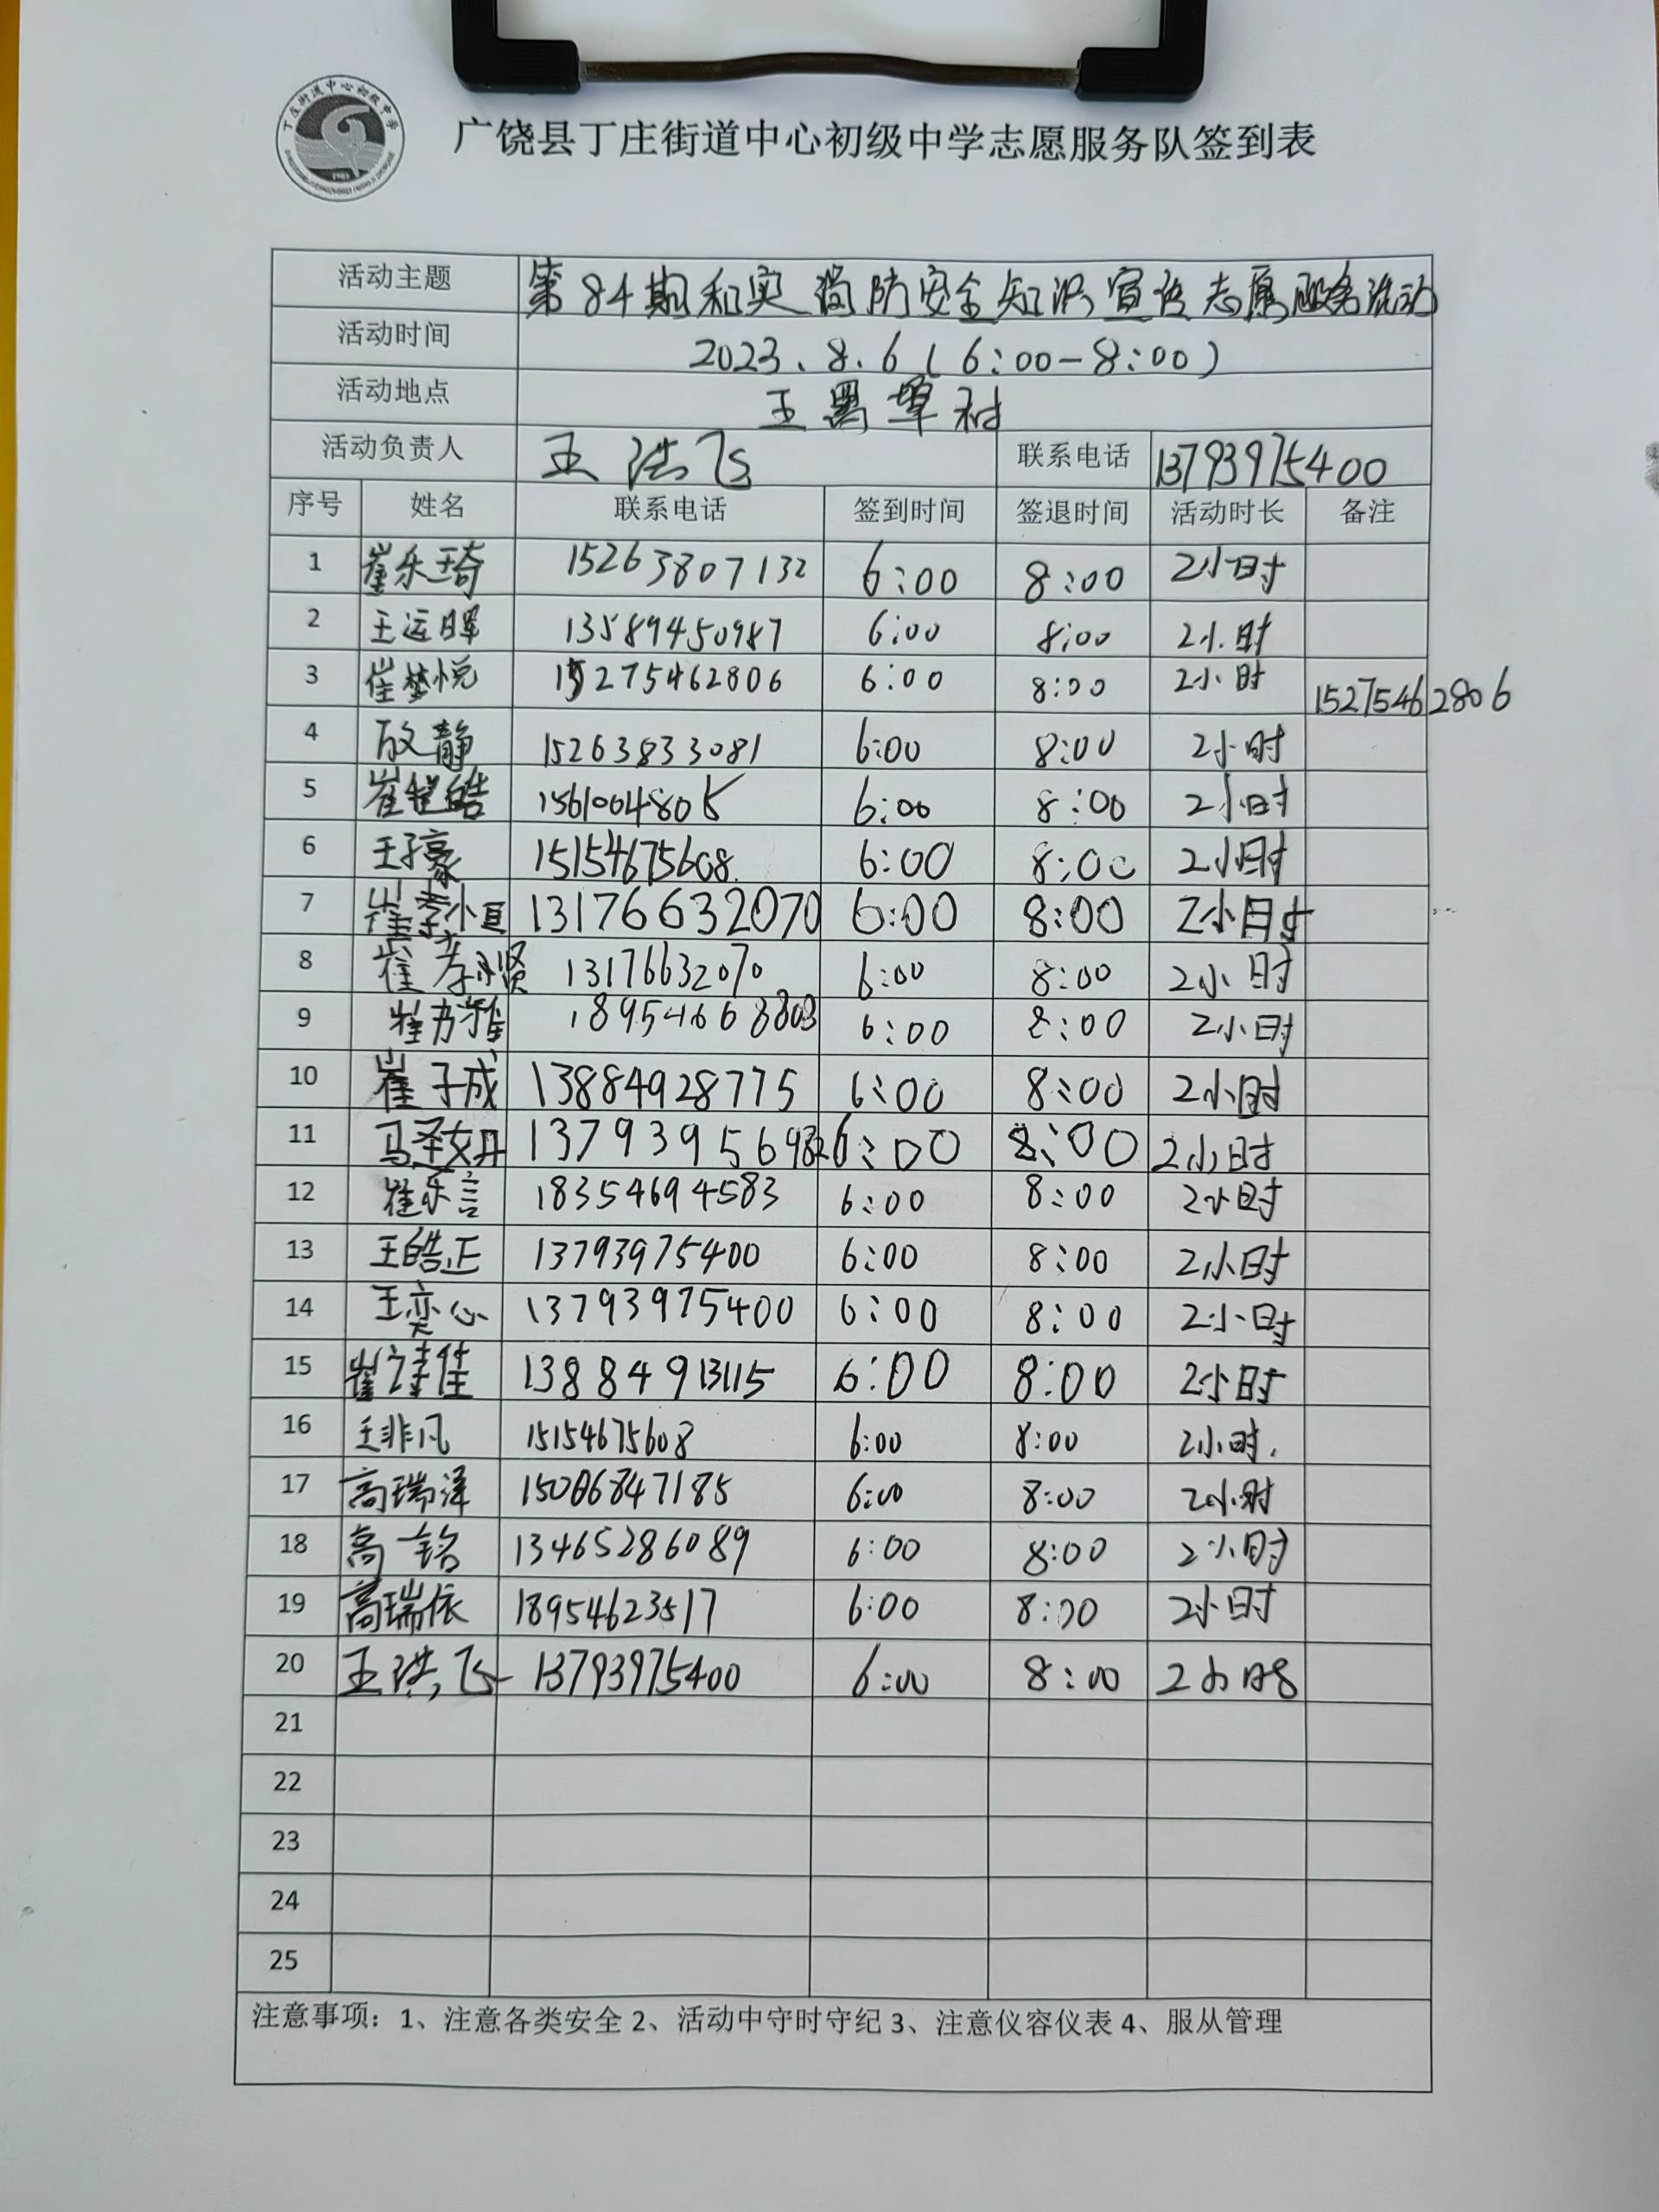 丁庄街道中心初级中学
广饶县丁庄街道中心初级中学志愿服务队签到表
活动主题 第84期和奕消防安全知识宣传志愿服务活动
活动时间 2023.8.6(6:00-8:00)
活动地点 王署埠村
活动负责人 王洪飞 联系电话 13793975400
序号 姓名 联系电话 签到时间 签退时间 活动时长 备注
1 崔乐琦 15263807132 6:00 8:00 2小时
2 王运晖 13589450987 6:00 8:00 2小时
3 崔梦悦 15275462806 6:00 8:00 2小时 15275462806
4 静 15263833081 6:00 8:00 2小时
5 崔皓 1561004805 6:00 8:00 2小时
6 王子豪 15154675608 6:00 8:00 2小时
7 崔 13176632070 6:00 8:00 2小时
8 崔 贤 13176632070 6:00 8:00 2小时
9 崔 雅 18954668803 6:00 8:00 2小时
10 崔子成 13884928775 6:00 8:00 2小时
11 马圣 6:00 8:00 2小时
12 崔乐言 18354694583 6:00 8:00 2小时
13 王皓正 13793975400 6:00 8:00 2小时
14 王奕心 13793975400 6:00 8:00 2小时
15 崔 佳 13884913115 6:00 8:00 2小时
16 王非凡 15154675608 6:00 8:00 2小时.
17 高瑞泽 15086847185 6:00 8:00 2小时
18 高铭 13465286089 6:00 8:00 2小时
19 高瑞依 18954623517 6:00 8:00 2小时
20 王洪飞 13793975400 6:00 8:00 2小时
21
22
23
24
25
注意事项：1、注意各类安全 2、活动中守时守纪 3、注意仪容仪表 4、服从管理